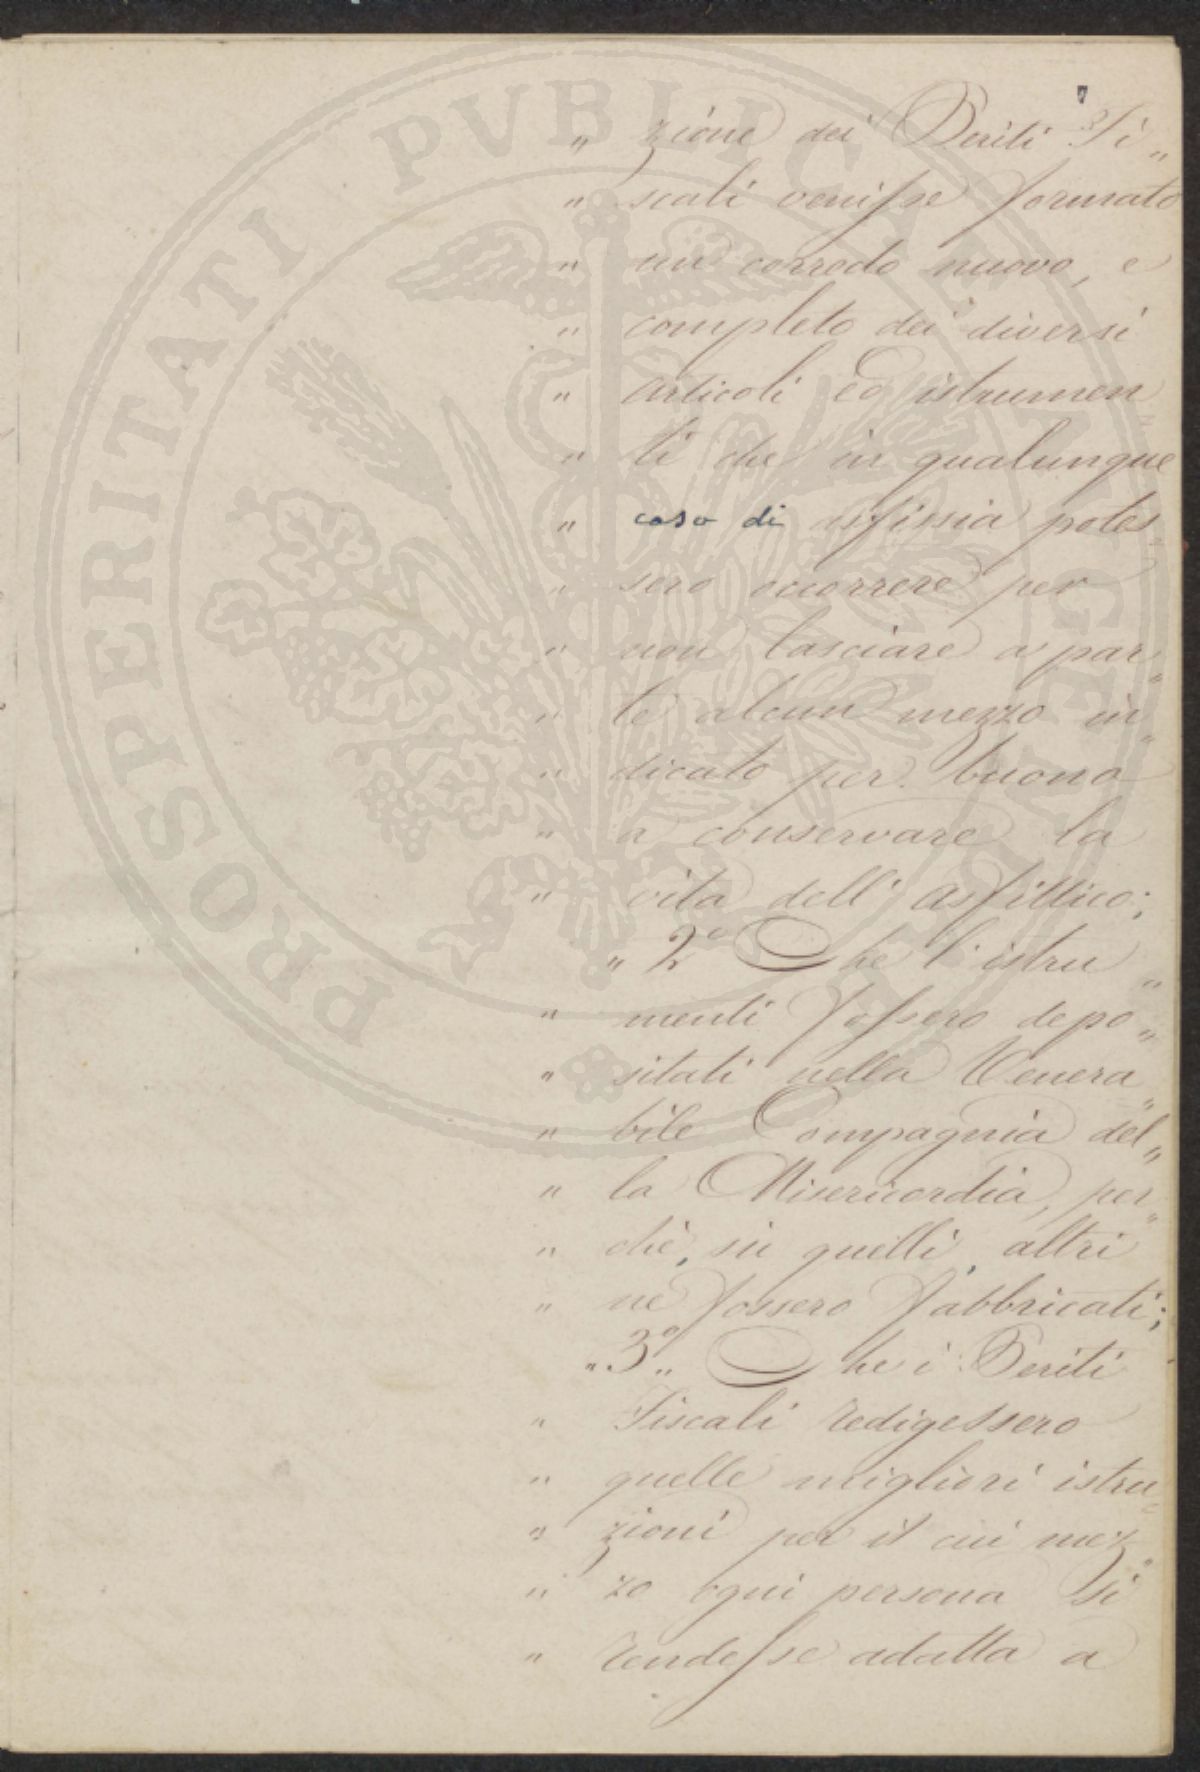 7
„ zione dei Periti Fi„
„ scali venisse formato
„ un corredo nuovo, e
„ completo dei diversi
„ articoli ed istrumen„
„ ti che in qualunque
„ caso di asfissia potes„
„ sero occorrere per
„ non lasciare a par„
„ te alcun mezzo in„
„ dicato per buono
„ a conservare la
„ vita dell' asfittico;
„ 2° Che l' istru„
„ menti fossero depo„
„ sitati nella Venera„
„ bile Compagnia del„
„ la Misericordia, per„
„ chè, su quelli, altri
„ ne fossero fabbricati;
„ 3°„ Che i Periti
„ Fiscali redigessero
„ quelle migliori istru„
„ zioni per il cui mez„
„ zo ogni persona si
„ rendesse adatta a
PROSPERITATI PVBLICAE AVGENDAE